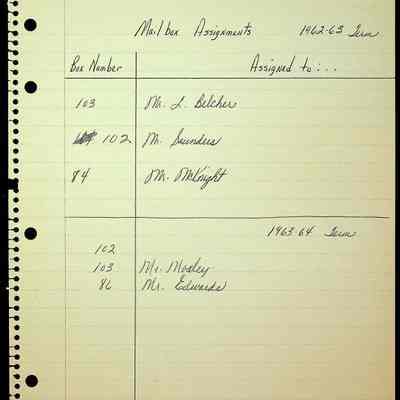 Mailbox Assignments 1962-63 Term
Box Number Assigned to: . . .
103 Mr. L. Belcher
102 Mr. Saunders
84 Mr. McKnight
1963-64 Term
102
103 Mr. Mosley
86 Mr. Edwards